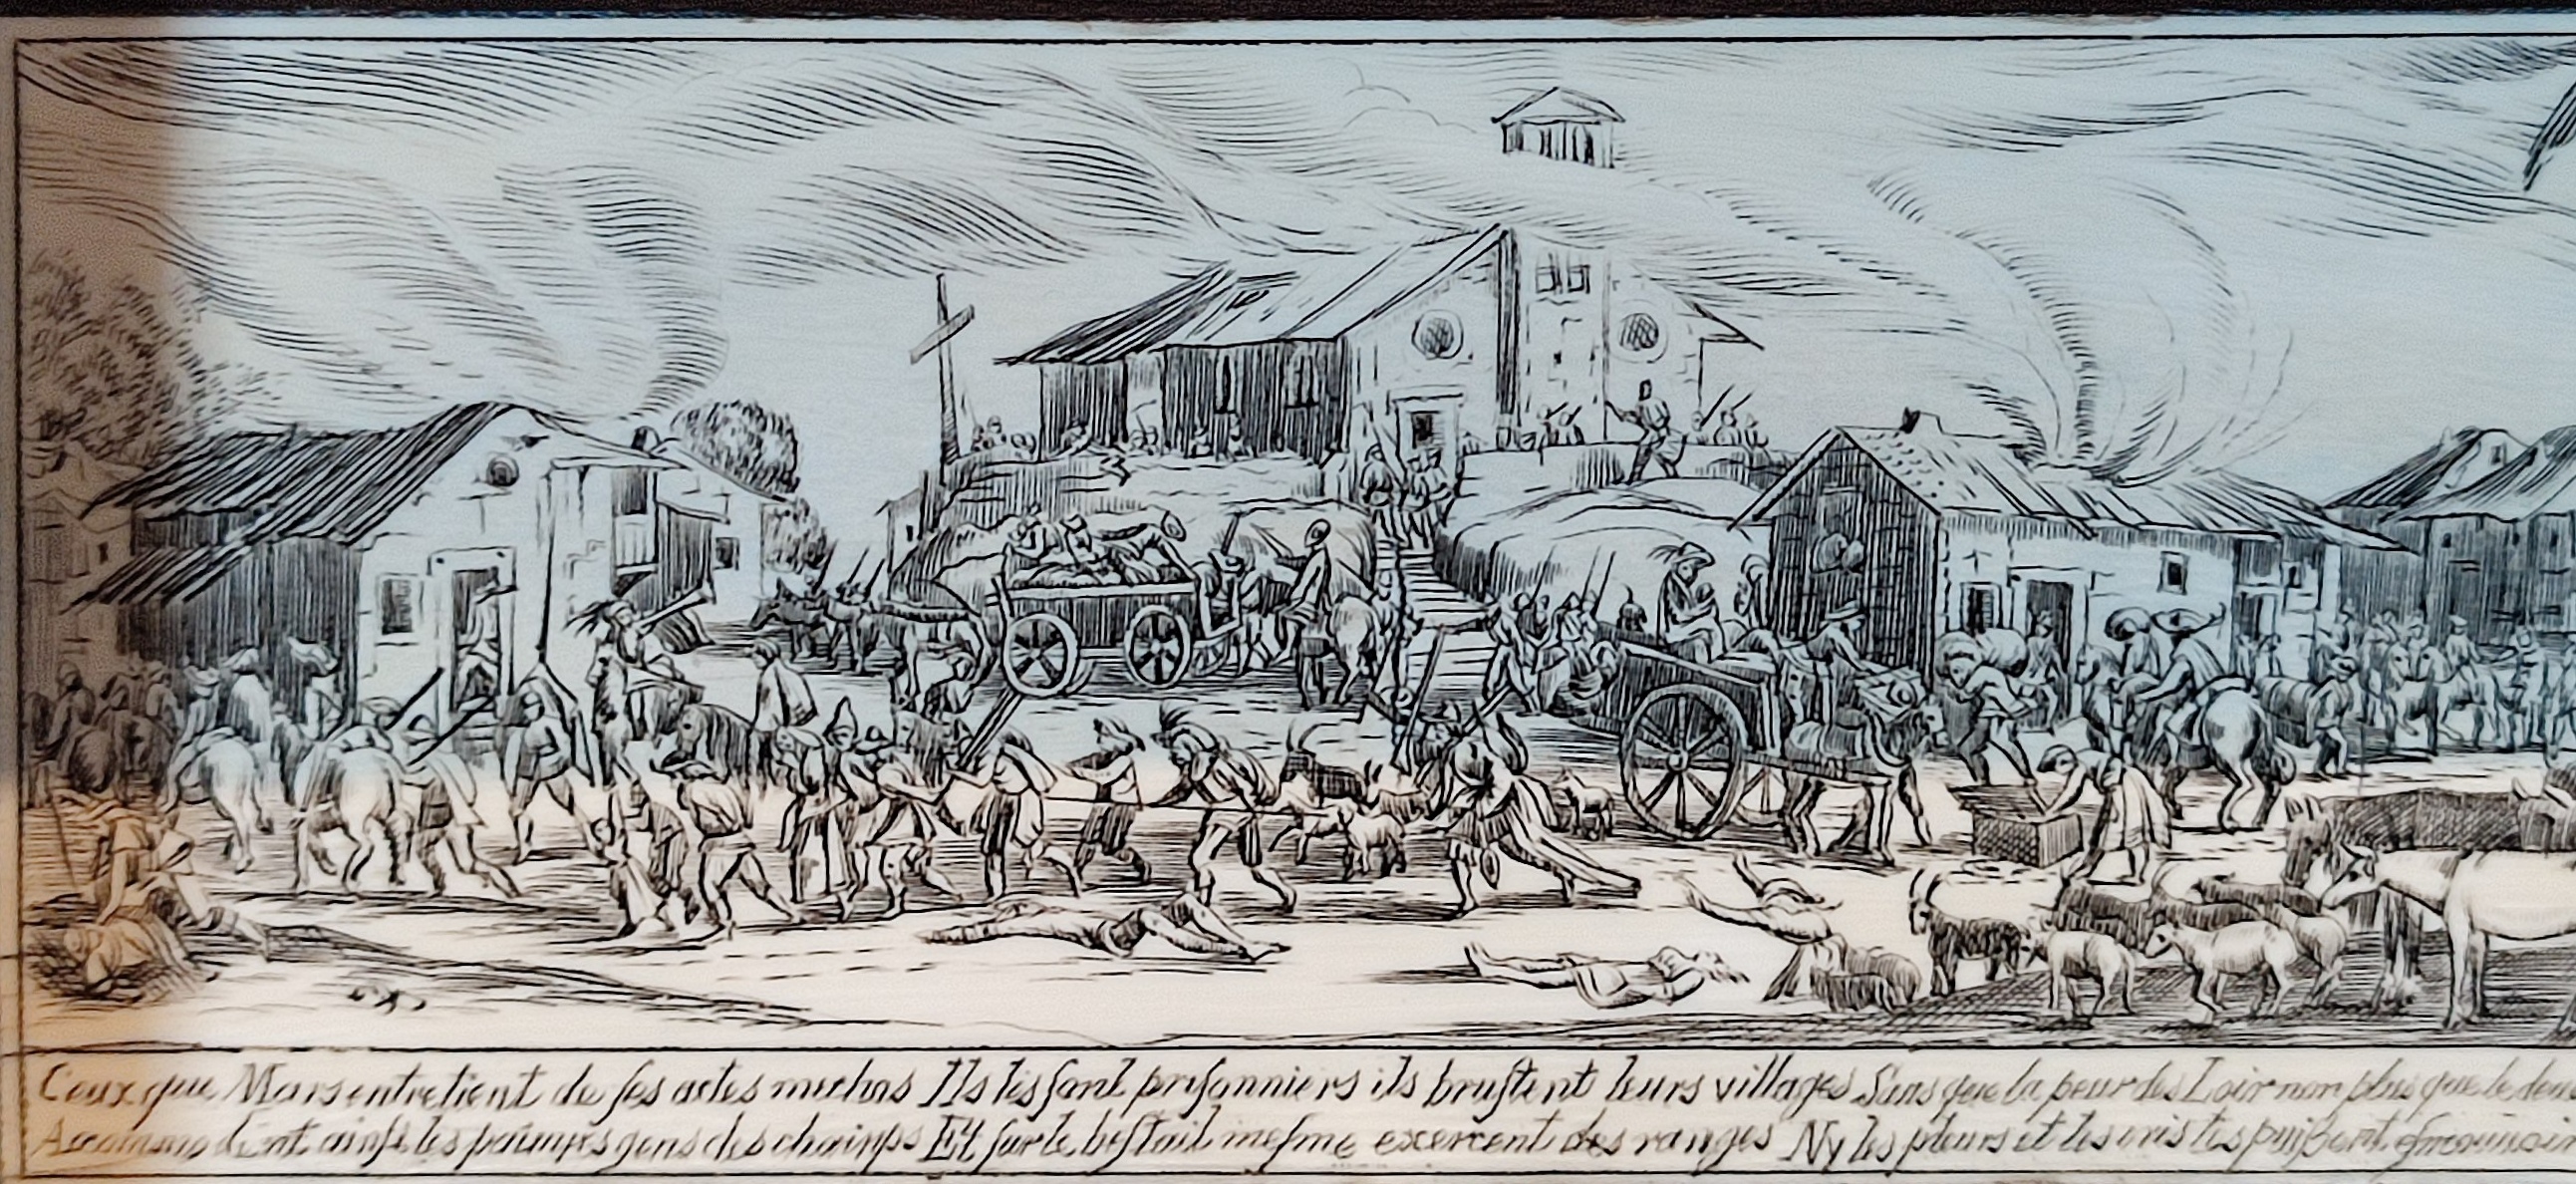 Ceux que Mars entretient de ses actes mechas Ils les font prisonniers ils bruslent leurs villages Sans que la peur des Loix non plus que le
ainsi les pauures gens des champs Et sur le bestail mesme exercent des ravages Ny les pleurs et les cris les puissent